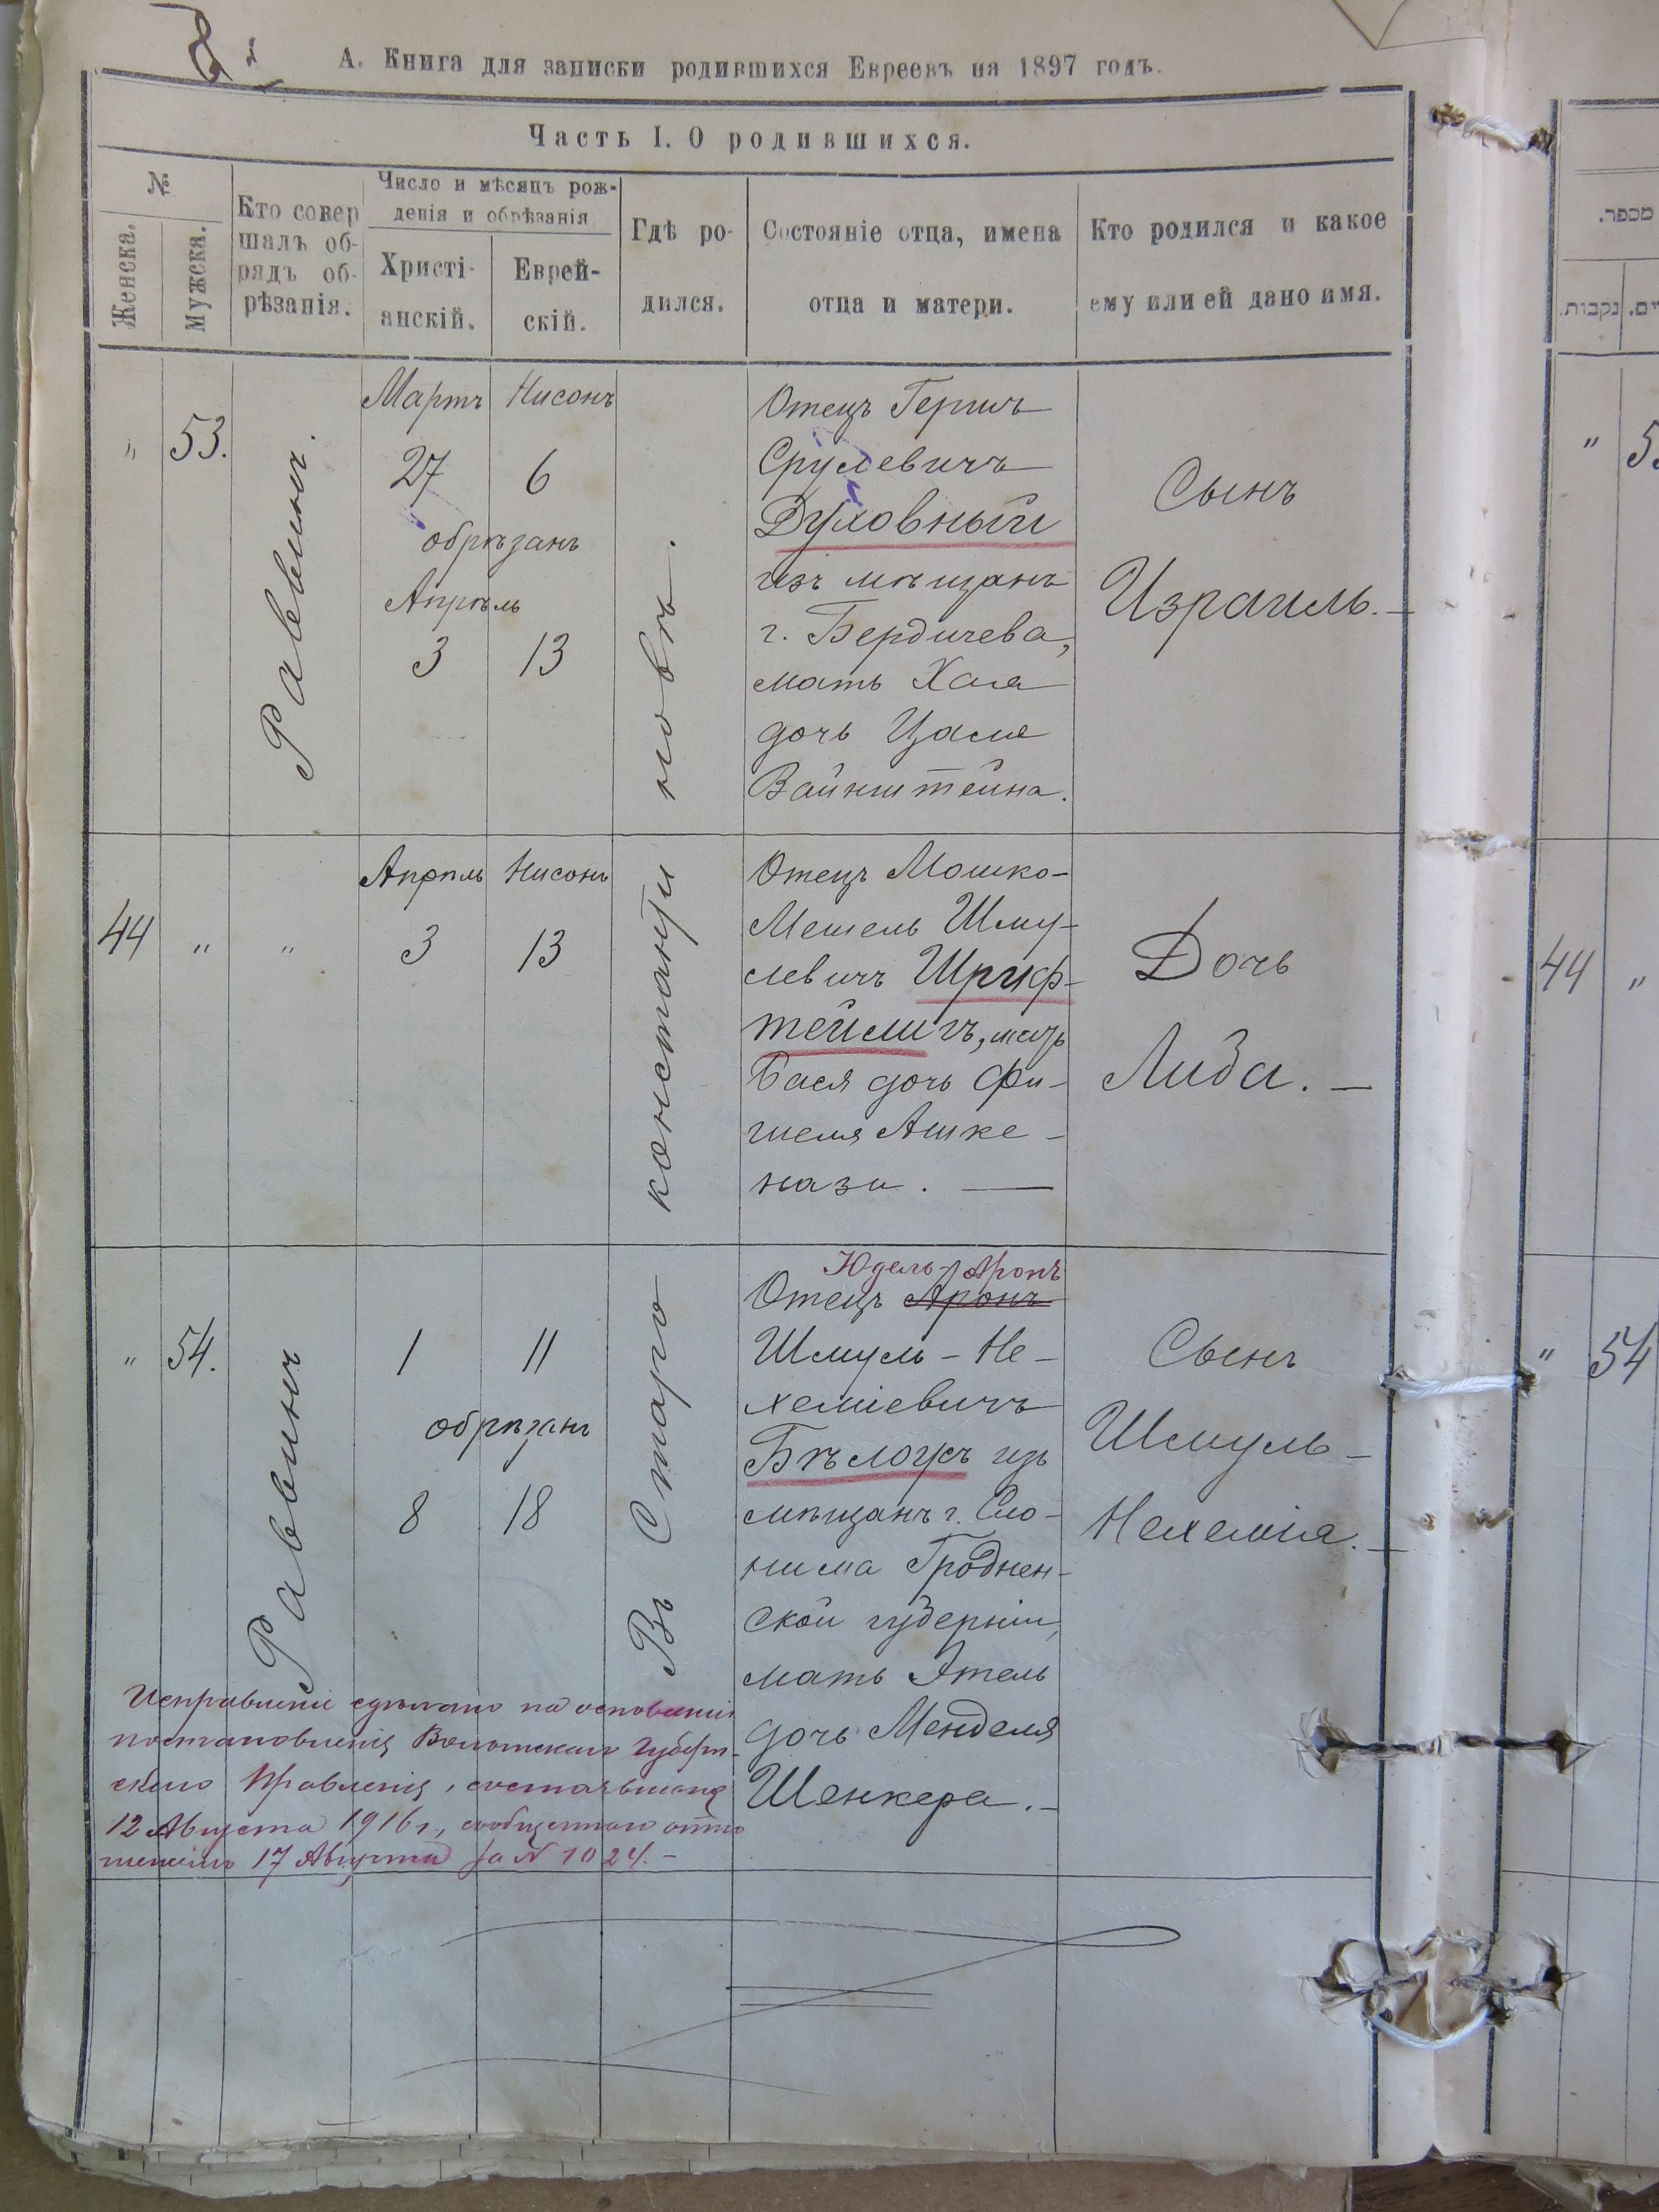 А. Книга для записки родившихся Евреевъ на 1897 годъ.
Часть I. О родившихся.
№
Женска.
Мужска.
Кто совер
шалъ об-
рядъ об-
рѣзанія.
Число и мѣсяцъ рож-
денія и обрѣзанія
Христі-
анскій.
Еврей-
скій.
Гдѣ ро-
дился.
Состояніе отца, имена
отца и матери.
Кто родился и какое
ему или ей дано имя.
" 53.
Раввинъ.
Мартъ Нисонъ
27 6
обрѣзанъ
Апрѣль
3 13
Отецъ Гершъ
Срулевичъ
Духовный
изъ мѣщанъ
г. Бердичева,
мать Хая
дочь
Вайнштейна.
Сынъ
Израиль.-
44 " "
Апрѣль Нисонъ
3 13
Отецъ Мошко-
Мешель Шму-
левичъ Шриф-
тейлигъ, мать
Бася дочь Фи-
шеля Ашке-
нази. —
Дочь
Либа. —
" 54.
Раввинъ
1 11
обрѣзанъ
8 18
Въ Старо
константи
новѣ.
Юдель-Аронъ
Отецъ Аронъ
Шмуль-Не-
хеміевичъ
Бѣлоусъ изъ
мѣщанъ г. Сло-
нима Гроднен-
ской губерніи,
мать Этель
дочь Менделя
Шенкера.-
Сынъ
Шмуль-
Нехемія.-
Исправленіе сдѣлано на основаніи
постановленія Волынскаго Губерн-
скаго Правленія, состоявшагося
12 Августа 1916 г., сообщеннаго отно
шеніемъ 17 Августа за № 1024.-
מספר.
נקבות.
" 5
44 "
" 54